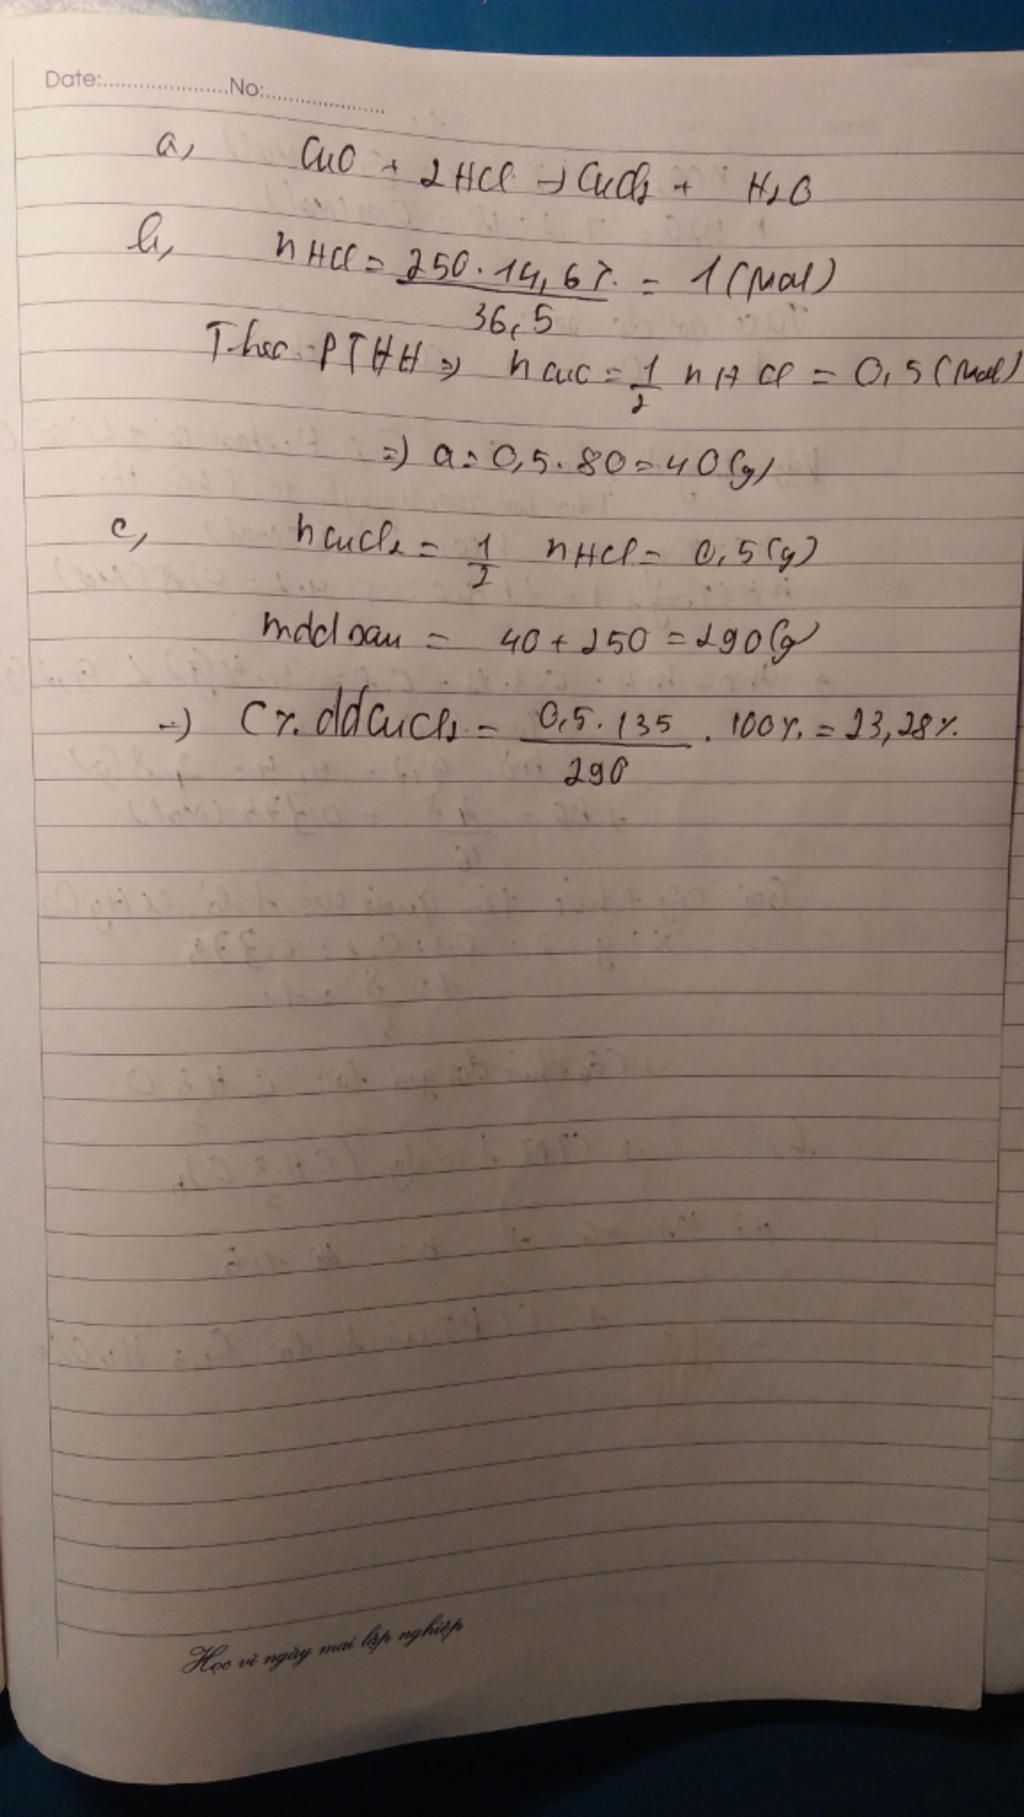 Date:......................No:......................
a, CuO + 2HCl → CuCl2 + H2O
b, nHCl = 250 . 14,6% / 36,5 = 1 (Mol)
Theo PTHH => nCuO = 1/2 nHCl = 0,5 (Mol)
=> a = 0,5 . 80 = 40 (g)
c, nCuCl2 = 1/2 nHCl = 0,5 (g)
mdd sau = 40 + 250 = 290 (g)
=> C%ddCuCl2 = 0,5 . 135 / 290 . 100% = 23,28%
Học vì ngày mai lập nghiệp